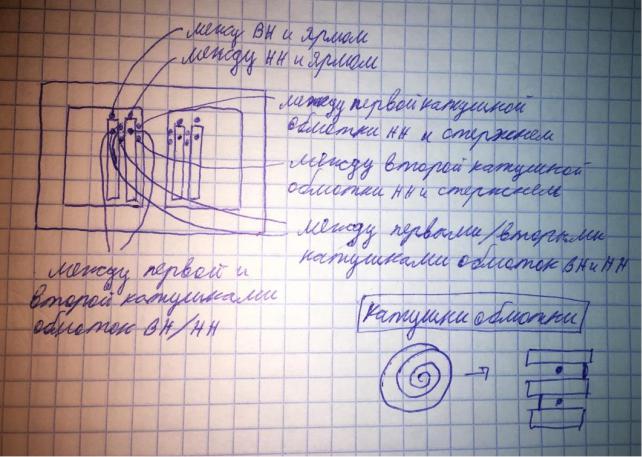 между ВН и Ярмом
между НН и Ярмом
между первой катушкой
обмотки НН и стержнем
между второй катушкой
обмотки НН и стержнем
между первыми/вторыми
катушками обмоток ВН и НН
между первой и
второй катушками
обмоток ВН/НН
Катушки обмотки